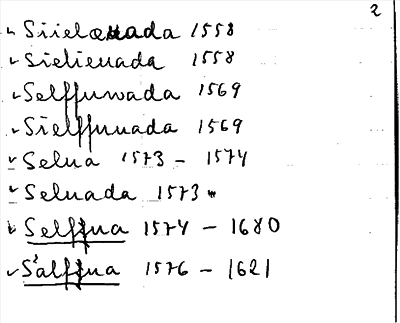 2
Siielauada 1558
Sielieuada 1558
Selffuwada 1569
Sielffuuada 1569
Selua 1573 - 1574
Seluada 1573
Selffua 1574 - 1680
S'alffua 1576 - 1621